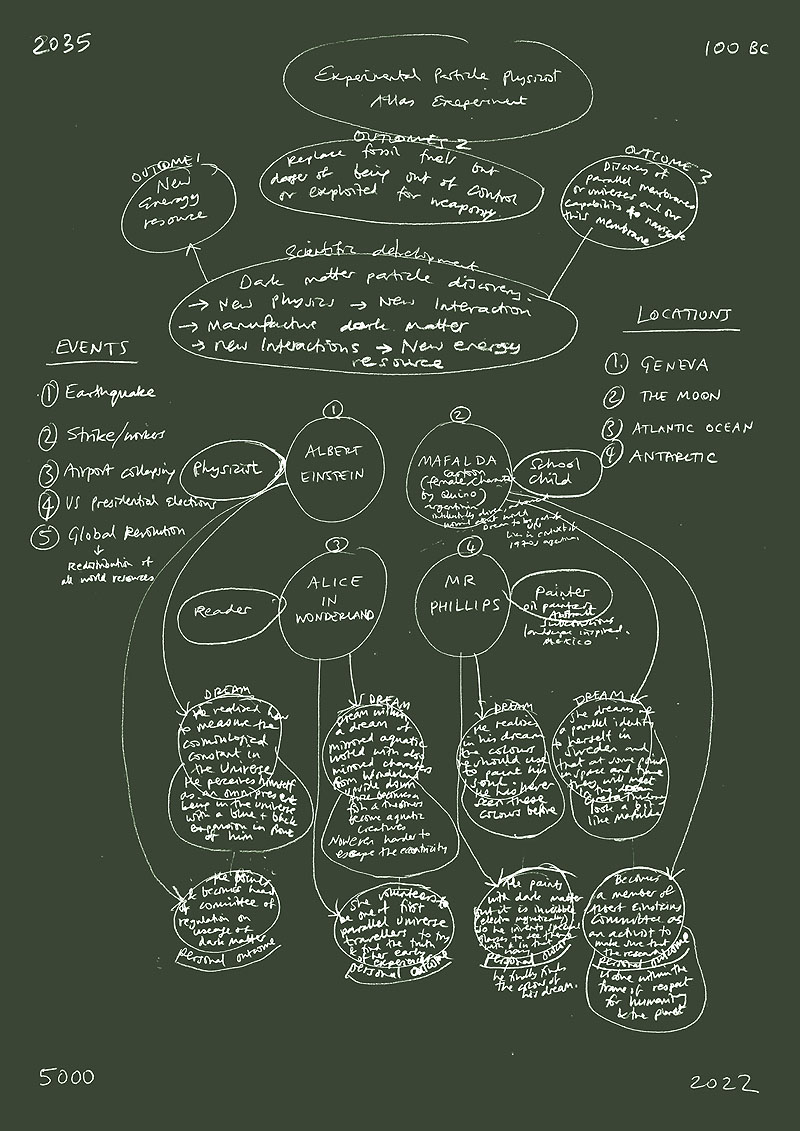 2035
100 BC
Experimental Particle Physicist
Atlas Experiment
OUTCOME 1
New
Energy
resource
OUTCOMES 2
Replace fossil fuels but
danger of being out of control
or exploited for weaponry
OUTCOME 3
Discovery of
parallel membranes
or universes and our
capability to navigate
this membrane
Scientific development
Dark matter particle discovery.
→ New Physics → New Interaction
→ Manufacture dark matter
→ new Interactions → New energy
resource
EVENTS
① Earthquake
② Strike/workers
③ Airport collapsing
④ US Presidential Elections
⑤ Global Revolution
↓
Redistribution of
all world resources
LOCATIONS
① GENEVA
② THE MOON
③ ATLANTIC OCEAN
④ ANTARCTIC
①
ALBERT
EINSTEIN
Physicist
②
MAFALDA
cartoon
(female character
by Quino)
argentinian
lives in context of
1970s argentina
School
Child
③
ALICE
IN
WONDERLAND
Reader
④
MR
PHILLIPS
Painter
oil painter
Abstract
subconscious
landscape inspired.
Mexico
DREAM
He realised how
to measure the
cosmological
constant in
the Universe
He perceives himself
as an omnipresent
being in the universe
with a blue + black
expansion in front
of him
DREAM
Dream within
a dream of
mirrored aquatic
world with also
mirrored characters
from Wonderland
upside down
Alice becomes a
fish &
become aquatic
creatures
However harder to
escape the eccentricity
DREAM
He realises
in his dream
the colour
he should use
to paint his
soul.
He has never
seen these
colours before
DREAM
She dreams of
a parallel identity
to herself in
Sweden and
that at some point
in space and time
they will meet
Greta Thunberg
look a bit
like Mafalda
he becomes head
of committee of
regulation on
useage of
dark matter
Personal outcome
she volunteers to
be one of first
parallel universe
travellers to try
& find the truth
of her early
experience
Personal outcome
He paints
with dark matter
but it is invisible
(electro magnetically)
so he invents special
glasses to see
Personal outcome
he finally finds
the colours of
his dream.
Becomes
a member of
that Einstein's
Committee as
an activist to
make sure that
the research
Personal outcome
is done within the
frame of respect
for humanity
& the planet
5000
2022